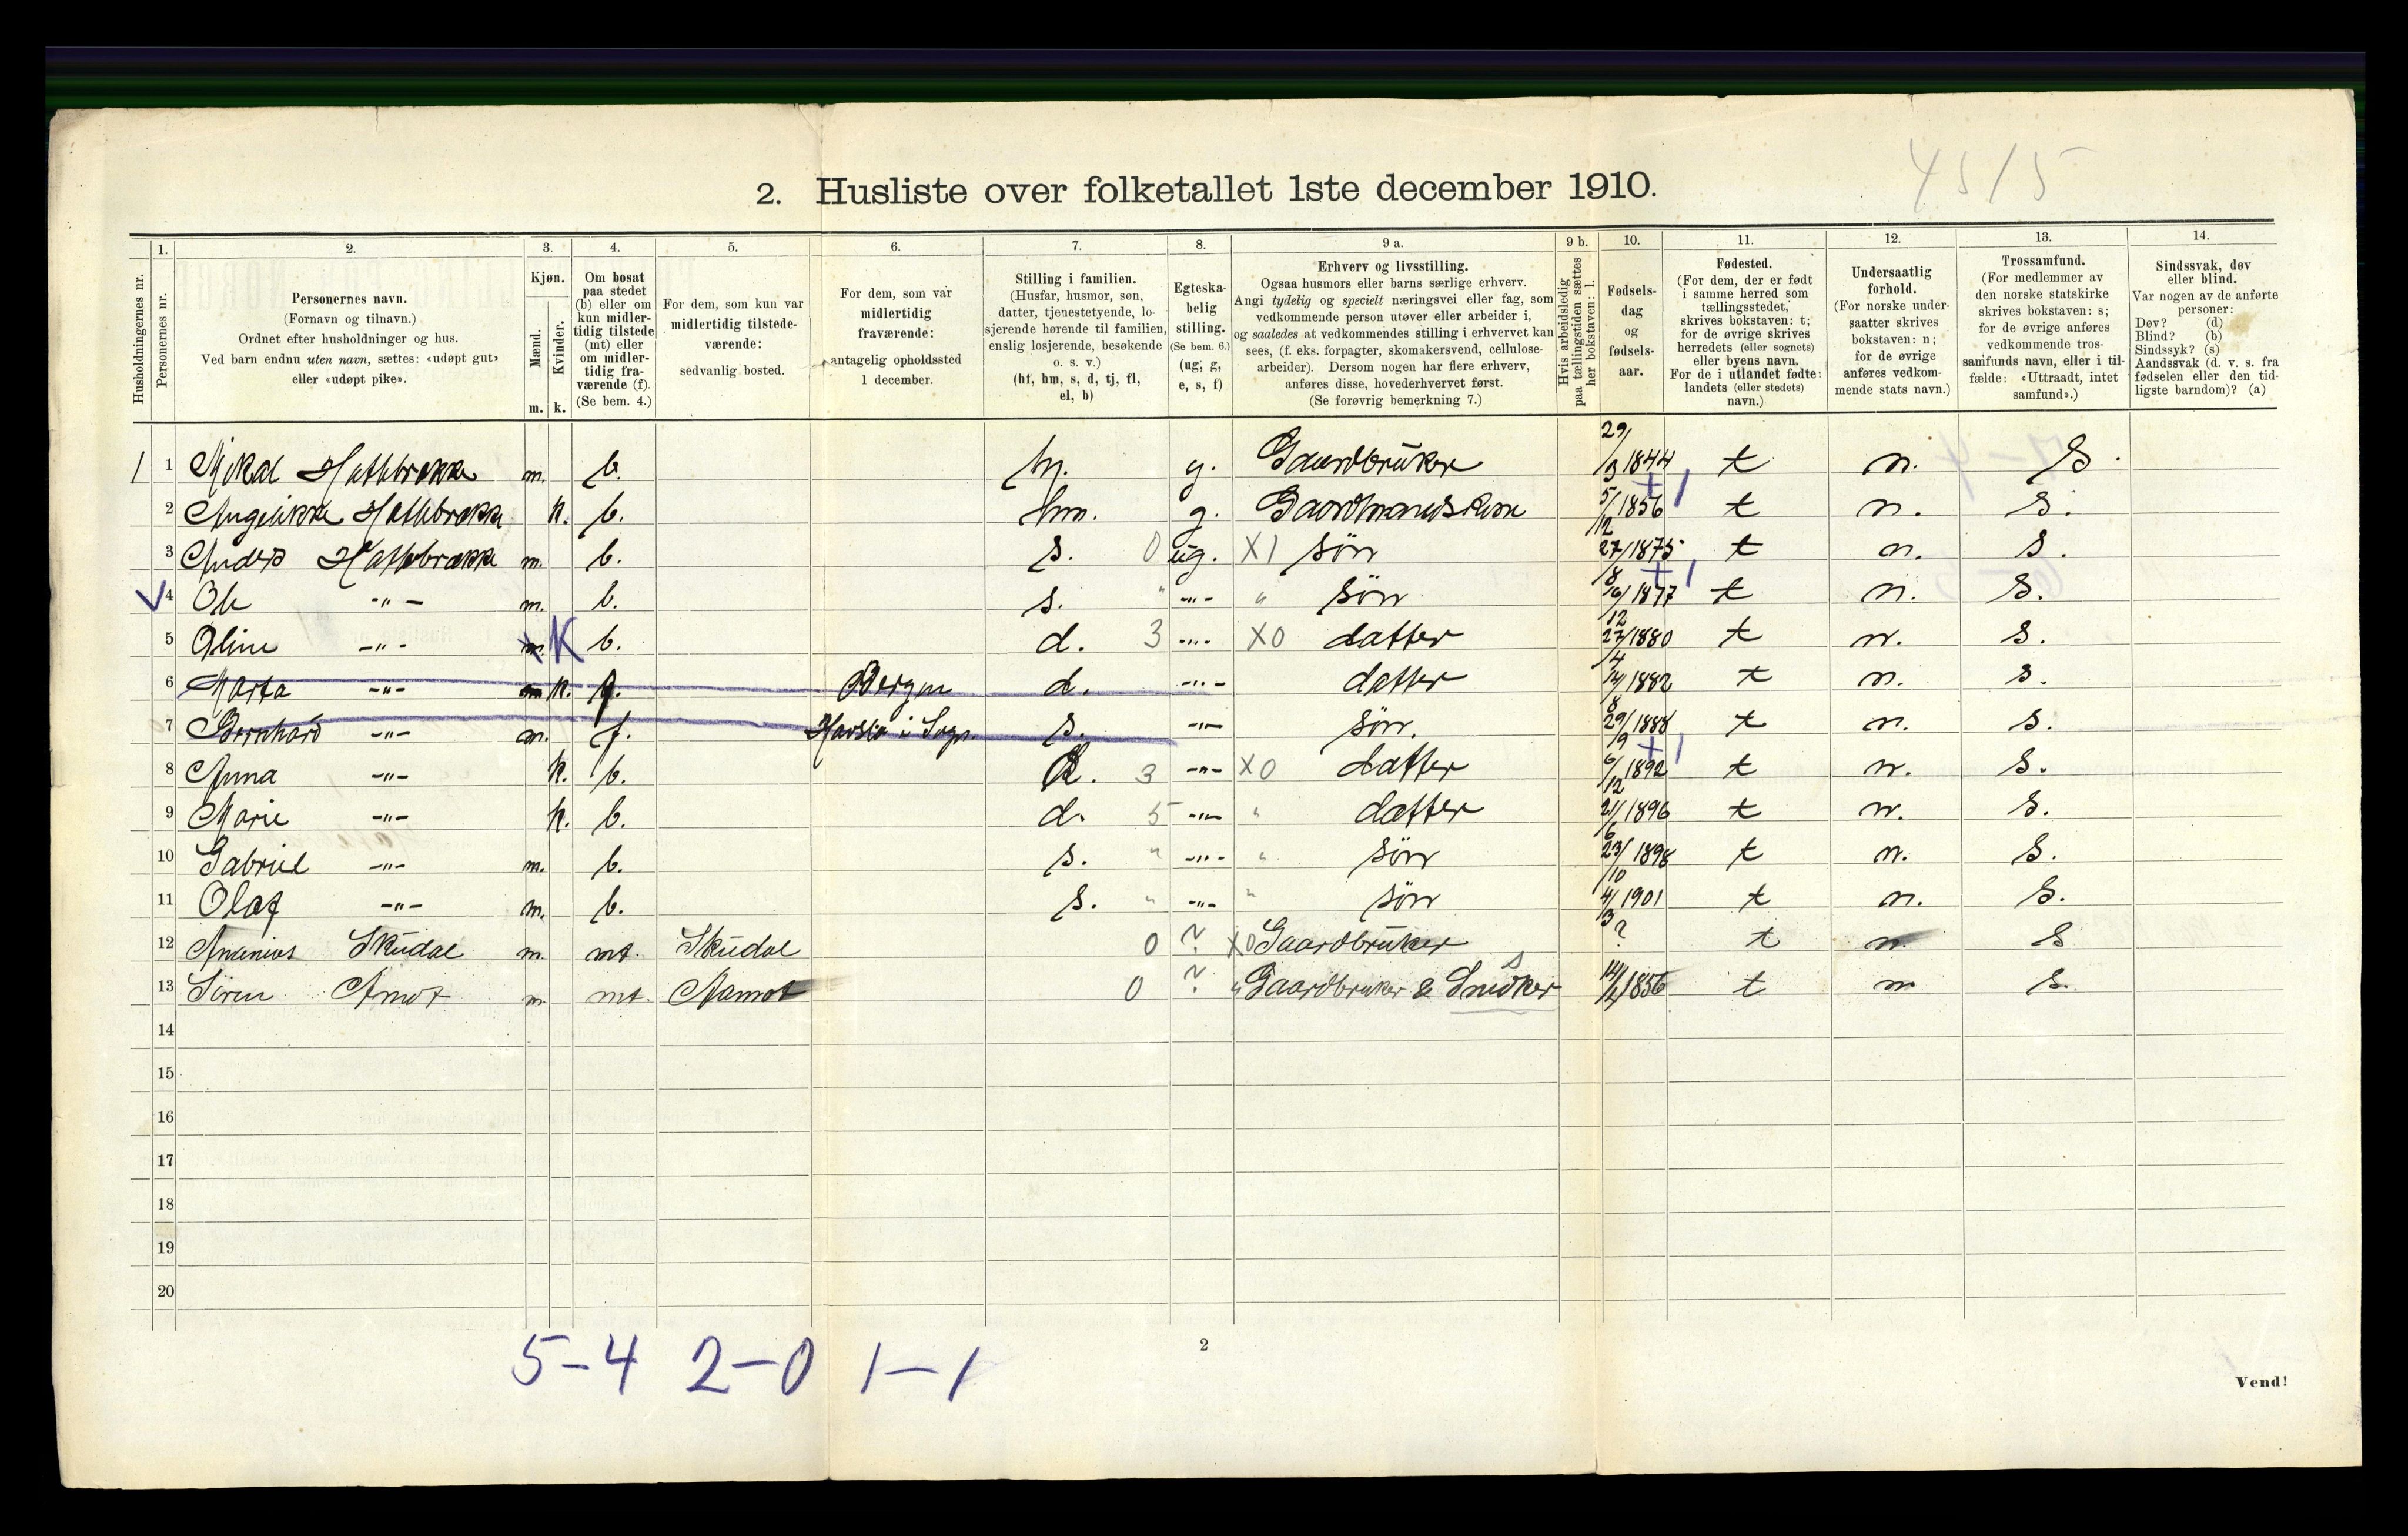 4515
2. Husliste over folketallet 1ste december 1910.
1. 2. 3. 4. 5. 6. 7. 8. 9 a. 9 b. 10. 11. 12. 13. 14.
Husholdningernes nr.
Personernes nr.
Personernes navn.
(Fornavn og tilnavn.)
Ordnet efter husholdninger og hus.
Ved barn endnu uten navn, sættes: «udøpt gut»
eller «udøpt pike».
Kjøn.
Mænd.
Kvinder.
m. k.
Om bosat
paa stedet
(b) eller om
kun midler-
tidig tilstede
(mt) eller
om midler-
tidig fra-
værende (f).
(Se bem. 4.)
For dem, som kun var
midlertidig tilstede-
værende:
sedvanlig bosted.
For dem, som var
midlertidig
fraværende:
antagelig opholdssted
1 december.
Stilling i familien.
(Husfar, husmor, søn,
datter, tjenestetyende, lo-
sjerende hørende til familien,
enslig losjerende, besøkende
o. s. v.)
(hf, hm, s, d, tj, fl,
el, b)
Egteska-
belig
stilling.
(Se bem. 6.)
(ug, g,
e, s, f)
Erhverv og livsstilling.
Ogsaa husmors eller barns særlige erhverv.
Angi tydelig og specielt næringsvei eller fag, som
vedkommende person utøver eller arbeider i,
og saaledes at vedkommendes stilling i erhvervet kan
sees, (f. eks. forpagter, skomakersvend, cellulose-
arbeider). Dersom nogen har flere erhverv,
anføres disse, hovederhvervet først.
(Se forøvrig bemerkning 7.)
Hvis arbeidsledig
paa tællingstiden sættes
her bokstaven: l.
Fødsels-
dag
og
fødsels-
aar.
Fødested.
(For dem, der er født
i samme herred som
tællingsstedet,
skrives bokstaven: t;
for de øvrige skrives
herredets (eller sognets)
eller byens navn.
For de i utlandet fødte:
landets (eller stedets)
navn.)
Undersaatlig
forhold.
(For norske under-
saatter skrives
bokstaven: n;
for de øvrige
anføres vedkom-
mende stats navn.)
Trossamfund.
(For medlemmer av
den norske statskirke
skrives bokstaven: s;
for de øvrige anføres
vedkommende tros-
samfunds navn, eller i til-
fælde: «Uttraadt, intet
samfund».)
Sindssvak, døv
eller blind.
Var nogen av de anførte
personer:
Døv? (d)
Blind? (b)
Sindssyk? (s)
Aandssvak (d. v. s. fra
fødselen eller den tid-
ligste barndom)? (a)
1 1 Mikal Hathbrekke m. b. g. Gaardbruker 29/3 1844 t n. S.
2 Angelikke Hathbrekke k. b. hm. g. 5/12 1856 t n. s.
3 Anders Hathbrekke m. b. s. 0 ug. X1 søn 27/8 1875 t n. s.
4 Ole -"- m. b. s. " -"- " søn 16/12 1877 t n. s.
5 Oline -"- m. K b. d. 3 -"- X0 datter 27/4 1880 t n. s.
6 Marta -"- k. f. Bergen d. -"- datter 14/8 1882 t n. s.
7 Bernhard -"- m. f. Havslo i Sogn. s. -"- søn. 29/9 1888 t n. s.
8 Anna -"- k. b. d. 3 -"- X0 datter 6/12 1892 t n. s.
9 Marie -"- k. b. d. 5 -"- " datter 21/6 1896 t n. s.
10 Gabriel -"- m. b. s. " -"- " søn 23/10 1898 t n. s.
11 Olaf -"- m. b. s. " -"- " søn 4/3 1901 t n. s.
12 Ananias Skudal m. mt. Skudal 0 ? X0 Gaardbruker ? t n. s
13 Sören Amot m mt. Aamot 0 ? " Gaardbruker & Snedker 1856 t n s.
14
15
16
17
18
19
20
5-4 2-0 1-1
2
Vend!